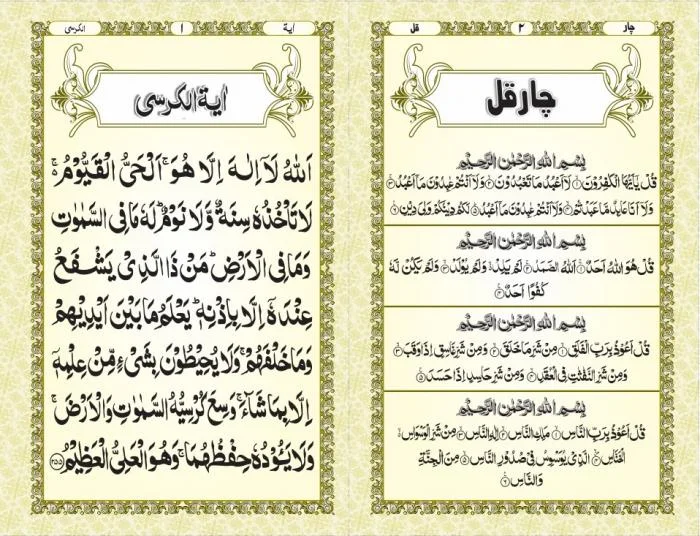 اية ۱ الكرسى
اية الكرسى
اَللّٰهُ لَآ اِلٰهَ اِلَّا هُوَ ۚ اَلْحَىُّ الْقَيُّوْمُ ۚ
لَا تَاْخُذُهٗ سِنَةٌ وَّلَا نَوْمٌ ؕ لَهٗ مَا فِى السَّمٰوٰتِ
وَمَا فِى الْاَرْضِ ؕ مَنْ ذَا الَّذِىْ يَشْفَعُ
عِنْدَهٗٓ اِلَّا بِاِذْنِهٖ ؕ يَعْلَمُ مَا بَيْنَ اَيْدِيْهِمْ
وَمَا خَلْفَهُمْ ۚ وَلَا يُحِيْطُوْنَ بِشَىْءٍ مِّنْ عِلْمِهٖٓ
اِلَّا بِمَا شَآءَ ۚ وَسِعَ كُرْسِيُّهُ السَّمٰوٰتِ وَالْاَرْضَ ۚ
وَلَا يَـُٔوْدُهٗ حِفْظُهُمَا ۚ وَهُوَ الْعَلِىُّ الْعَظِيْمُ ﴿۲۵۵﴾
چار ۲ قل
چار قل
بِسْمِ اللّٰهِ الرَّحْمٰنِ الرَّحِيْمِ
قُلْ يٰٓاَيُّهَا الْكٰفِرُوْنَ ۙ﴿۱﴾ لَآ اَعْبُدُ مَا تَعْبُدُوْنَ ۙ﴿۲﴾ وَلَآ اَنْتُمْ عٰبِدُوْنَ مَآ اَعْبُدُ ۚ﴿۳﴾
وَلَآ اَنَا عَابِدٌ مَّا عَبَدْتُّمْ ۙ﴿۴﴾ وَلَآ اَنْتُمْ عٰبِدُوْنَ مَآ اَعْبُدُ ؕ﴿۵﴾ لَكُمْ دِيْنُكُمْ وَلِىَ دِيْنِ ﴿۶﴾
بِسْمِ اللّٰهِ الرَّحْمٰنِ الرَّحِيْمِ
قُلْ هُوَ اللّٰهُ اَحَدٌ ۚ﴿۱﴾ اَللّٰهُ الصَّمَدُ ۚ﴿۲﴾ لَمْ يَلِدْ ۙ وَلَمْ يُوْلَدْ ۙ﴿۳﴾ وَلَمْ يَكُنْ لَّهٗ
كُفُوًا اَحَدٌ ﴿۴﴾
بِسْمِ اللّٰهِ الرَّحْمٰنِ الرَّحِيْمِ
قُلْ اَعُوْذُ بِرَبِّ الْفَلَقِ ۙ﴿۱﴾ مِنْ شَرِّ مَا خَلَقَ ۙ﴿۲﴾ وَمِنْ شَرِّ غَاسِقٍ اِذَا وَقَبَ ۙ﴿۳﴾
وَمِنْ شَرِّ النَّفّٰثٰتِ فِى الْعُقَدِ ۙ﴿۴﴾ وَمِنْ شَرِّ حَاسِدٍ اِذَا حَسَدَ ﴿۵﴾
بِسْمِ اللّٰهِ الرَّحْمٰنِ الرَّحِيْمِ
قُلْ اَعُوْذُ بِرَبِّ النَّاسِ ۙ﴿۱﴾ مَلِكِ النَّاسِ ۙ﴿۲﴾ اِلٰهِ النَّاسِ ۙ﴿۳﴾ مِنْ شَرِّ الْوَسْوَاسِ ۙ
الْخَنَّاسِ ۙ﴿۴﴾ الَّذِىْ يُوَسْوِسُ فِىْ صُدُوْرِ النَّاسِ ۙ﴿۵﴾ مِنَ الْجِنَّةِ
وَالنَّاسِ ﴿۶﴾